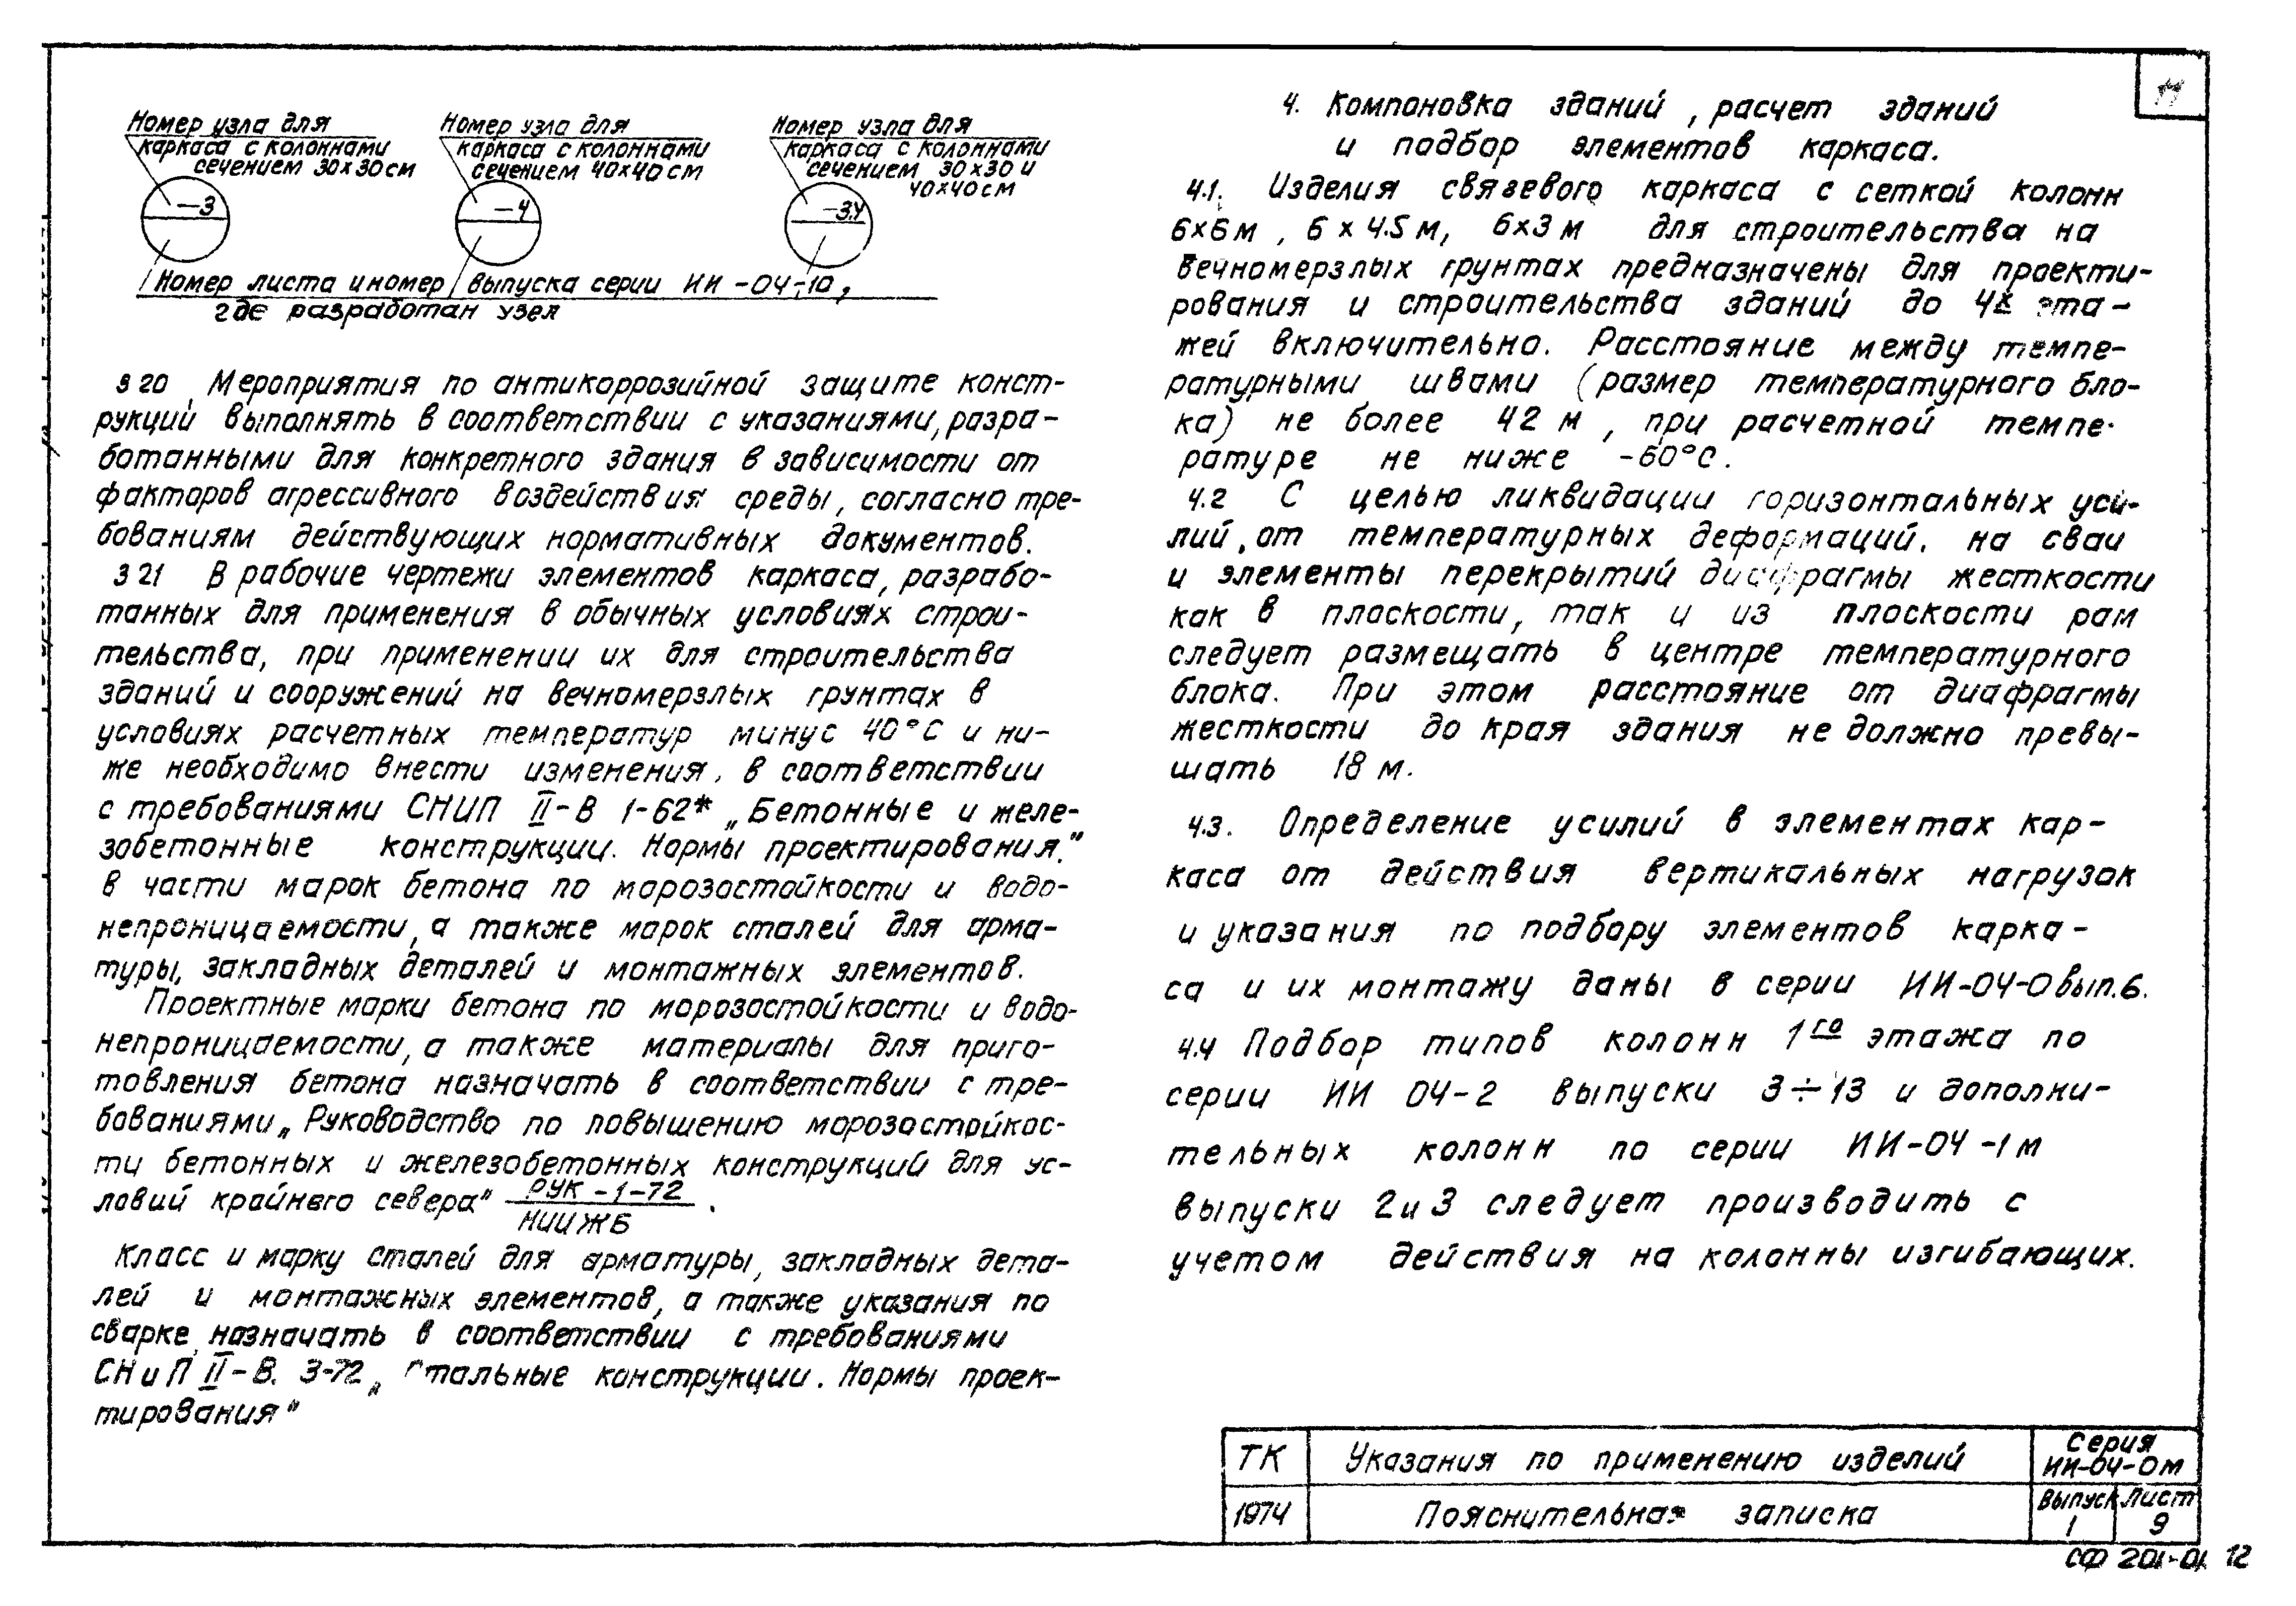 Номер узла для
каркаса с колоннами
сечением 30х30см
—3
Номер узла для
каркаса с колоннами
сечением 40х40см
—4
Номер узла для
каркаса с колоннами
сечением 30х30 и
40х40см
—3,4
Номер листа и номер выпуска серии ИИ-04-10,
где разработан узел
3 20 Мероприятия по антикоррозийной защите конст-
рукций выполнять в соответствии с указаниями, разра-
ботанными для конкретного здания в зависимости от
факторов агрессивного воздействия среды, согласно тре-
бованиям действующих нормативных документов.
3 21 В рабочие чертежи элементов каркаса, разрабо-
танных для применения в обычных условиях строи-
тельства, при применении их для строительства
зданий и сооружений на вечномерзлых грунтах в
условиях расчетных температур минус 40°С и ни-
же необходимо внести изменения, в соответствии
с требованиями СНИП II-В 1-62* „Бетонные и желе-
зобетонные конструкции. Нормы проектирования."
в части марок бетона по морозостойкости и водо-
непроницаемости, а также марок сталей для арма-
туры, закладных деталей и монтажных элементов.
Проектные марки бетона по морозостойкости и водо-
непроницаемости, а также материалы для приго-
товления бетона назначать в соответствии с тре-
бованиями „Руководство по повышению морозостойкос-
ти бетонных и железобетонных конструкций для ус-
ловий крайнего севера" РУК-1-72
НИИЖБ.
Класс и марку сталей для арматуры, закладных дета-
лей и монтажных элементов, а также указания по
сварке назначать в соответствии с требованиями
СНиП II-В. 3-72 „Стальные конструкции. Нормы проек-
тирования"
4. Компановка зданий, расчет зданий
и подбор элементов каркаса.
4.1. Изделия связевого каркаса с сеткой колонн
6х6м, 6 х 4.5 м, 6х3 м для строительства на
вечномерзлых грунтах предназначены для проекти-
рования и строительства зданий до 4х эта-
жей включительно. Расстояние между темпе-
ратурными швами (размер температурного бло-
ка) не более 42 м, при расчетной темпе-
ратуре не ниже -60°С.
4.2 С целью ликвидации горизонтальных уси-
лий, от температурных деформаций, на сваи
и элементы перекрытий диафрагмы жесткости
как в плоскости, так и из плоскости рам
следует размещать в центре температурного
блока. При этом расстояние от диафрагмы
жесткости до края здания не должно превы-
шать 18 м.
4.3. Определение усилий в элементах кар-
каса от действия вертикальных нагрузок
и указания по подбору элементов карка-
са и их монтажу даны в серии ИИ-04-0 вып.6.
4.4 Подбор типов колонн 1го этажа по
серии ИИ 04-2 выпуски 3÷13 и дополни-
тельных колонн по серии ИИ-04-1м
выпуски 2 и 3 следует производить с
учетом действия на колонны изгибающих.
ТК
Указания по применению изделий
Серия
ИИ-04-0м
1974
Пояснительная записка
Выпуск
1
Лист
9
СФ 201-01 12